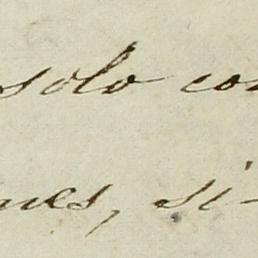 solo con
nes, si-